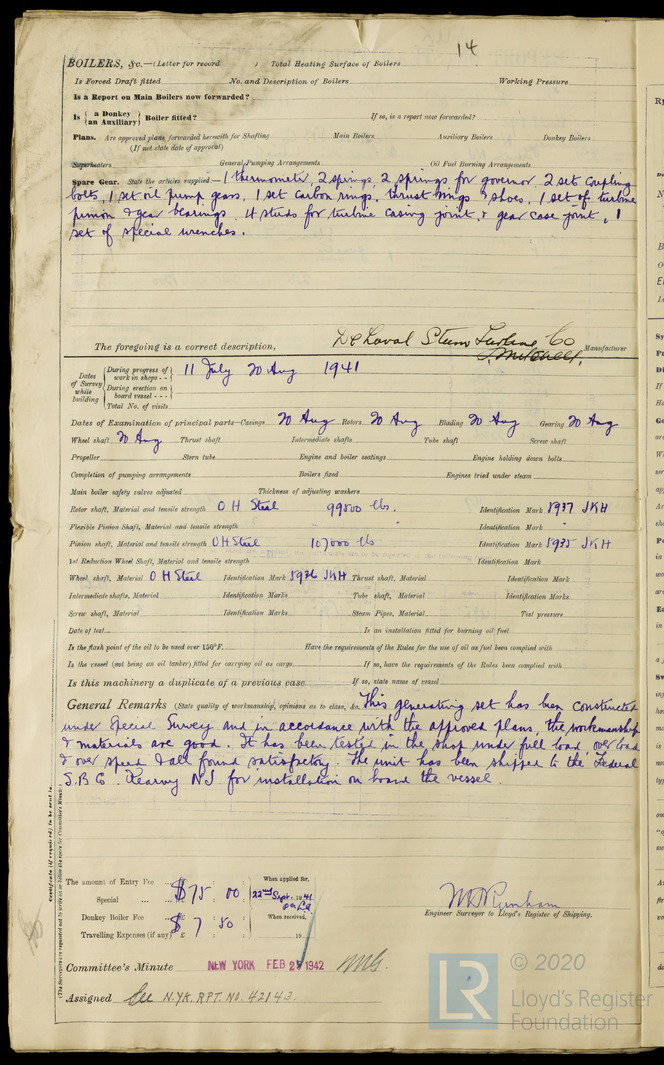 14
BOILERS, &c.—(Letter for record ) Total Heating Surface of Boilers
Is Forced Draft fitted No. and Description of Boilers Working Pressure
Is a Report on Main Boilers now forwarded?
Is {a Donkey / an Auxiliary} Boiler fitted? If so, is a report now forwarded?
Plans. Are approved plans forwarded herewith for Shafting Main Boilers Auxiliary Boilers Donkey Boilers
(If not state date of approval)
Superheaters General Pumping Arrangements Oil Fuel Burning Arrangements
Spare Gear. State the articles supplied:— 1 thermometer, 2 springs, 2 springs for governor, 2 set coupling
bolts, 1 set oil pump gears, 1 set carbon rings, thrust rings & shoes, 1 set of turbine
pinion & gear bearings, 4 studs for turbine casing joint, & gear case joint, 1
set of special wrenches.
The foregoing is a correct description,
De Laval Steam Turbine Co
Manufacturer
Dates of Survey while building
During progress of work in shops - - 11 July 20 Aug 1941
During erection on board vessel - - -
Total No. of visits
Dates of Examination of principal parts—Casings 20 Aug Rotors 20 Aug Blading 20 Aug Gearing 20 Aug
Wheel shaft 20 Aug Thrust shaft Intermediate shafts Tube shaft Screw shaft
Propeller Stern tube Engine and boiler seatings Engine holding down bolts
Completion of pumping arrangements Boilers fixed Engines tried under steam
Main boiler safety valves adjusted Thickness of adjusting washers
Rotor shaft, Material and tensile strength O H Steel 99500 lbs. Identification Mark 5937 JKH
Flexible Pinion Shaft, Material and tensile strength Identification Mark
Pinion shaft, Material and tensile strength O H Steel 107000 lbs Identification Mark 5935 JKH
1st Reduction Wheel Shaft, Material and tensile strength Identification Mark
Wheel shaft, Material O H Steel Identification Mark 5936 JKH Thrust shaft, Material Identification Mark
Intermediate shafts, Material Identification Marks Tube shaft, Material Identification Marks
Screw shaft, Material Identification Marks Steam Pipes, Material Test pressure
Date of test Is an installation fitted for burning oil fuel
Is the flash point of the oil to be used over 150°F. Have the requirements of the Rules for the use of oil as fuel been complied with
Is the vessel (not being an oil tanker) fitted for carrying oil as cargo If so, have the requirements of the Rules been complied with
Is this machinery a duplicate of a previous case If so, state name of vessel
General Remarks (State quality of workmanship, opinions as to class, &c. This generating set has been constructed
under Special Survey and in accordance with the approved plans, the workmanship
& materials are good. It has been tested in the shop under full load, over load
& over speed & all found satisfactory. The unit has been shipped to the Federal
S.B Co. Kearny NJ for installation on board the vessel.
Certificate (if required) to be sent to
(The Surveyors are requested not to write on or below the space for Committee's Minute.)
The amount of Entry Fee
Special $75 : 00
Donkey Boiler Fee £
Travelling Expenses (if any) £ $ 7 : 50
When applied for,
22nd Sept. 1941
When received,
19
Engineer Surveyor to Lloyd's Register of Shipping.
Committee's Minute NEW YORK FEB 27 1942
Assigned See N.YK. RPT. NO. 42143.
LR
© 2020
Lloyd's Register
Foundation